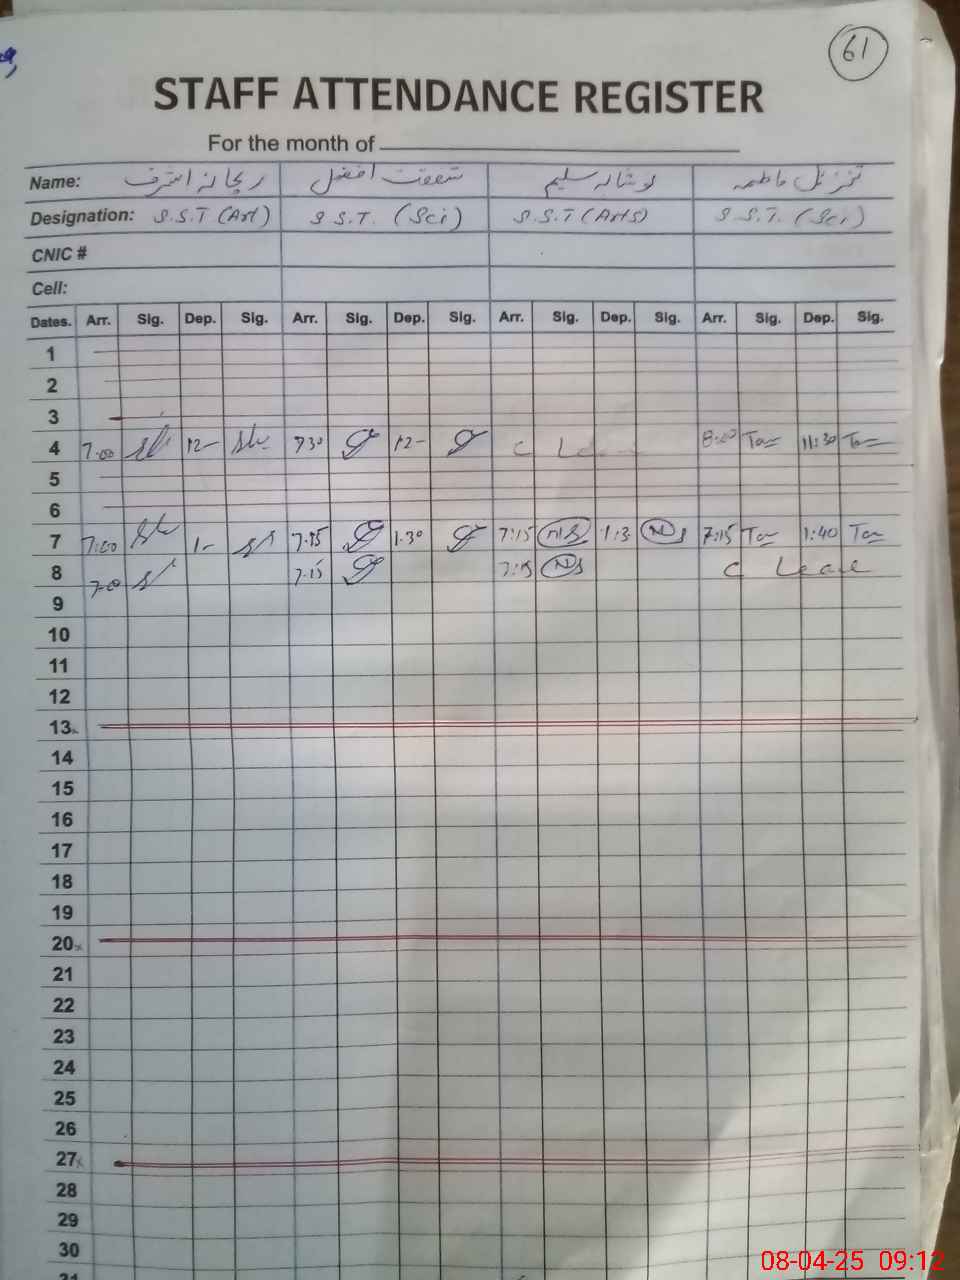 61
STAFF ATTENDANCE REGISTER
For the month of
Name: ریحانہ اشرف شفقت افضل نوشابہ سلیم فاطمہ
Designation: S.S.T (Art) S.S.T. (Sci) S.S.T (Arts) S.S.T. (Sci)
CNIC #
Cell:
Dates. Arr. Sig. Dep. Sig. Arr. Sig. Dep. Sig. Arr. Sig. Dep. Sig. Arr. Sig. Dep. Sig.
1
2
3
4 7:00 12- 7:30 12- C Leave 8:00 11:30
5
6
7 7:00 1- 7:15 1:30 7:15 NS 1:3 NS 7:15 1:40
8 7:0 7:15 7:15 NS C Leave
9
10
11
12
13x
14
15
16
17
18
19
20x
21
22
23
24
25
26
27x
28
29
30
31
08-04-25 09:12